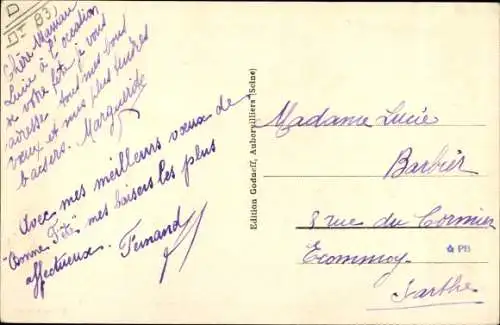 D
Dt 83
Chère Maman
Lucie à l'occasion
de votre fête je vous
adresse tous mes bons
vœux et mes plus tendres
baisers. Marguerite
Avec mes meilleurs vœux de
"Bonne Fête" mes baisers les plus
affectueux. Fernand
Edition Godneff, Aubervilliers (Seine)
Madame Lucie
Barbier
8 rue du Cormier
Ecommoy
PB
Sarthe